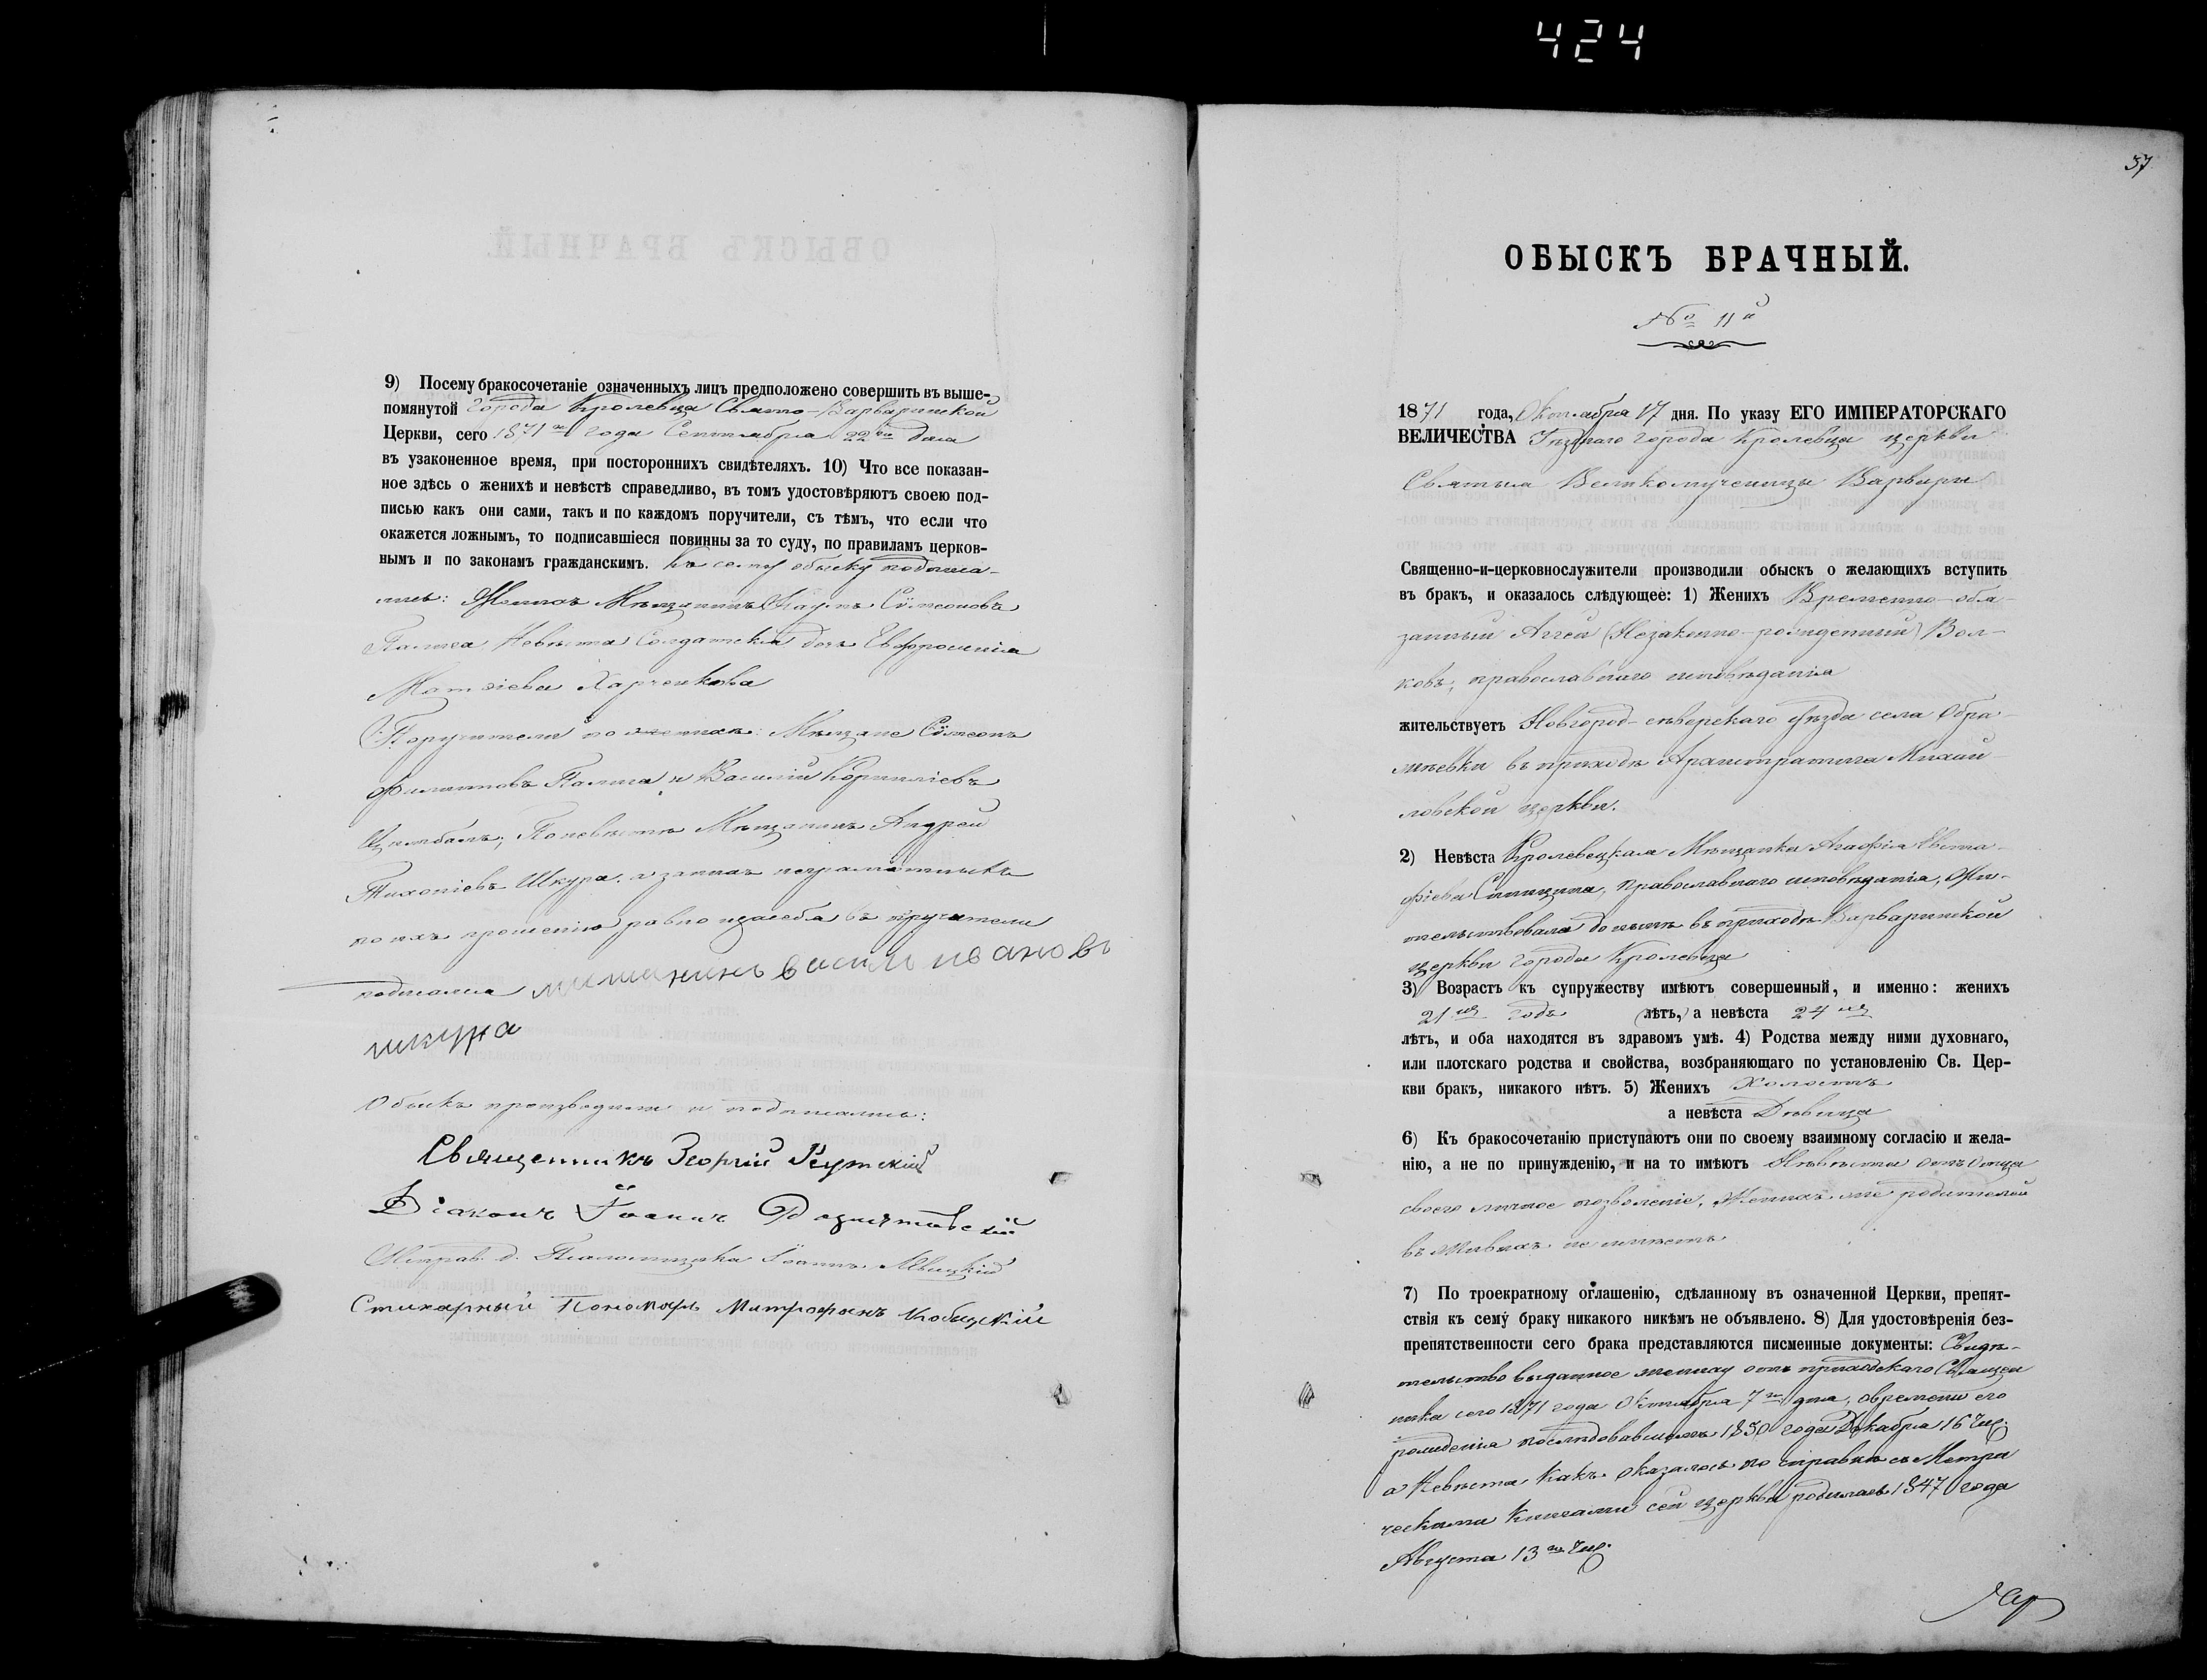 424
9) Посему бракосочетаніе означенныхъ лицъ предположено совершить въ выше-
помянутой города Кролевца Свято-Варваринской
Церкви, сего 1871го года Сентября 22го дня
въ узаконенное время, при постороннихъ свидѣтеляхъ. 10) Что все показан-
ное здѣсь о женихѣ и невѣстѣ справедливо, въ томъ удостовѣряютъ своею под-
писью какъ они сами, такъ и по каждомъ поручители, съ тѣмъ, что если что
окажется ложнымъ, то подписавшіеся повинны за то суду, по правиламъ церков-
нымъ и по законамъ гражданскимъ. Къ сему обыску подписа-
лись: Женихъ Мѣщанинъ Наумъ Сѵмеоновъ
Палига Невѣста Солдатская дочь Евфросинія
Матѳіева Харченкова
Поручители по женихѣ: Мѣщане Сѵмеонъ
Филиповъ Палига и Василій Корниліевъ
Цимбалъ; По невѣстѣ Мѣщанинъ Андрей
Тихоніевъ Шкура, а за нихъ неграмотныхъ
по ихъ прошенію равно и за себя въ поручители
подписался мищанинъ василь ивановъ
шкура
Обыскъ производили и подписались:
Священникъ Георгій Кутскій
Діаконъ Іоаннъ
Исправ. д. Псаломщика Іоаннъ
Стихарный Пономарь Митрофанъ Кобицкій
37
ОБЫСКЪ БРАЧНЫЙ.
№ 11й
1871 года, Октября 17 дня. По указу ЕГО ИМПЕРАТОРСКАГО
ВЕЛИЧЕСТВА Уѣзднаго города Кролевца церкви
Святыя Великомученицы Варвары
Священно-и-церковнослужители производили обыскъ о желающихъ вступить
въ бракъ, и оказалось слѣдующее: 1) Женихъ Временно-обя-
занный Аггей (Незаконно-рожденный) Вол-
ковъ, православнаго исповѣданія
жительствуетъ Новгород-сѣверскаго уѣзда села Обра-
жѣевки въ приходѣ Архистратига Михаи-
ловской церкви.
2) Невѣста Кролевецкая Мѣщанка Агафія Евста-
фіева Синицина, православнаго исповѣданія, Жи-
тельствовала до нынѣ въ приходѣ Варваринской
церкви города Кролевца
3) Возрастъ къ супружеству имѣютъ совершенный, и именно: женихъ
21й годъ (лѣтъ,) а невѣста 24
лѣтъ, и оба находятся въ здравомъ умѣ. 4) Родства между ними духовнаго,
или плотскаго родства и свойства, возбраняющаго по установленію Св. Цер-
кви бракъ, никакого нѣтъ. 5) Женихъ Холостъ
а невѣста Дѣвица
6) Къ бракосочетанію приступаютъ они по своему взаимному согласію и жела-
нію, а не по принужденію, и на то имѣютъ Невѣста отъ Отца
своего личное позволеніе, Женихъ же родителей
въ живыхъ не имѣетъ
7) По троекратному оглашенію, сдѣланному въ означенной Церкви, препят-
ствія къ сему браку никакого никѣмъ не объявлено. 8) Для удостовѣренія без-
препятственности сего брака представляются писменные документы: Свидѣ-
тельство выданное жениху отъ приходскаго Священ
ника сего 1871 года Октября 7го дня, о времени его
рожденія послѣдовавшемъ 1850 года Декабря 16 чис.
а Невѣста какъ оказалось по справкѣ съ Метри
ческими книгами сей церкви родилась 1847 года
Августа 13го чис.